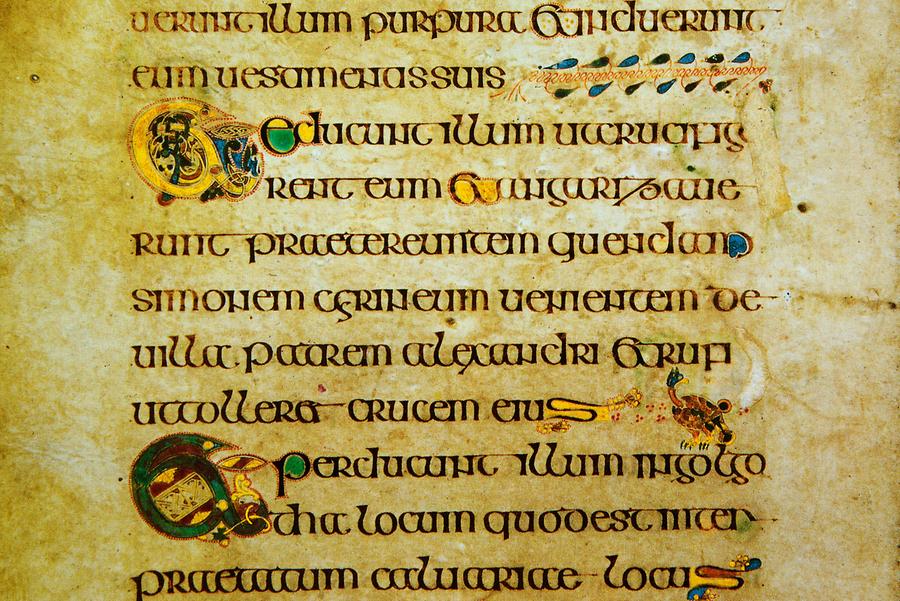 uerunt illum purpura & induerunt
eum uestimentis suis
Et educunt illum ut crucifig
rent eum Et angarizaue
runt praetereuntem quendam
simonem cyrineum uenientem de
uilla patrem alexandri & rufi
ut tolleret crucem eius
Et perducunt illum in golgo
tha locum quod est inter
praetatum caluariae locus